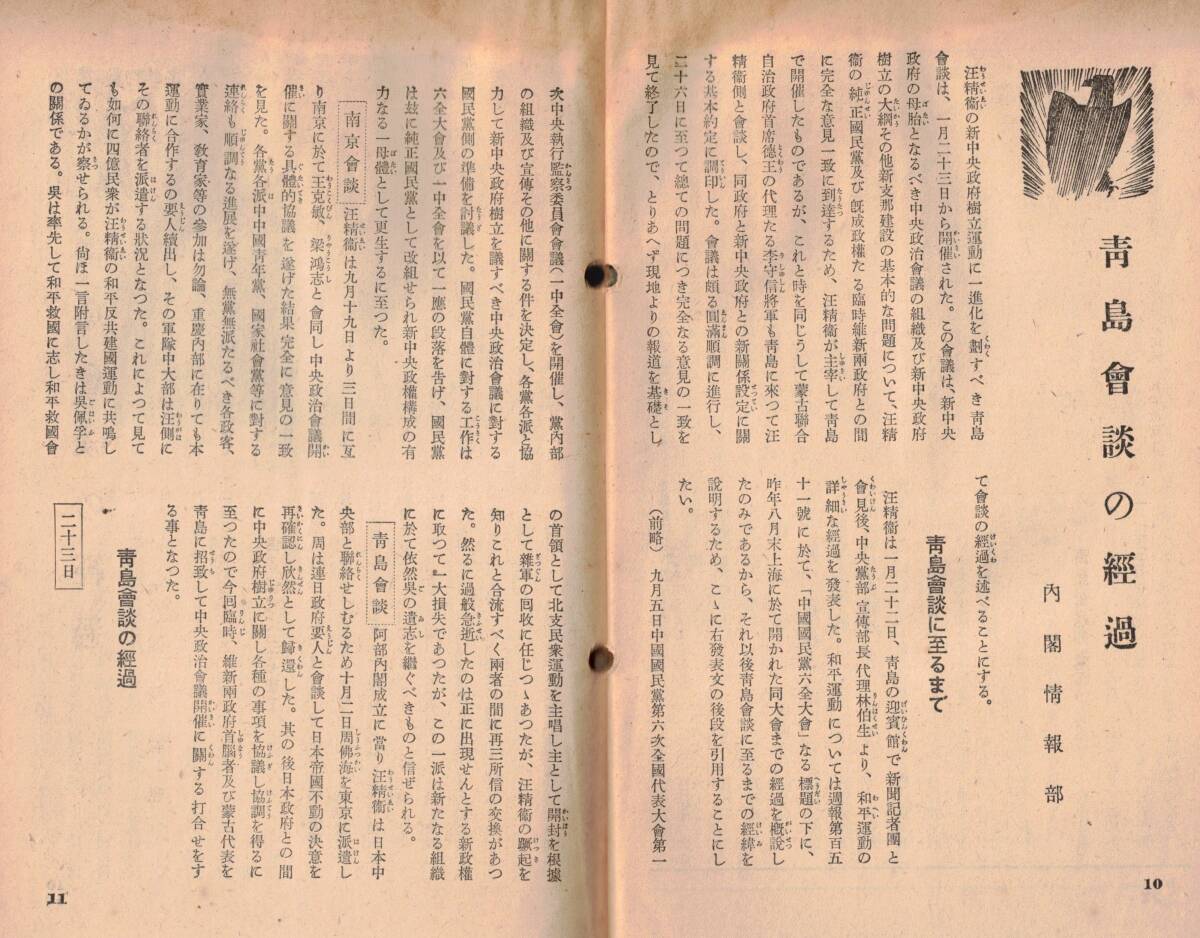 靑島會談の經過
內閣情報部
汪精衞の新中央政府樹立運動に一進化を劃すべき靑島
會談は、一月二十三日から開催された。この會議は、新中央
政府の母胎となるべき中央政治會議の組織及び新中央政府
樹立の大綱その他新支那建設の基本的な問題について、汪精
衞の純正國民黨及び既成政權たる臨時維新兩政府との間
に完全な意見一致に到達するため、汪精衞が主宰して靑島
で開催したものであるが、これと時を同じうして蒙古聯合
自治政府首席德王の代理たる李守信將軍も靑島に來つて汪
精衞側と會談し、同政府と新中央政府との新關係設定に關
する基本約定に調印した。會議は頗る圓滿順調に進行し、
二十六日に至つて總ての問題につき完全なる意見の一致を
見て終了したので、とりあへず現地よりの報道を基礎とし
て會談の經過を述べることにする。
靑島會談に至るまで
汪精衞は一月二十二日、靑島の迎賓館で新聞記者團と
會見後、中央黨部宣傳部長代理林伯生より、和平運動の
詳細な經過を發表した。和平運動については週報第百五
十一號に於て、「中國國民黨六全大會」なる標題の下に、
昨年八月末上海に於て開かれた同大會までの經過を槪說し
たのみであるから、それ以後靑島會談に至るまでの經緯を
說明するため、こゝに右發表文の後段を引用することにし
たい。
(前略) 九月五日中國國民黨第六次全國代表大會第一
10
次中央執行監察委員會會議(一中全會)を開催し、黨內部
の組織及び宣傳その他に關する件を決定し、各黨各派と協
力して新中央政府樹立を議すべき中央政治會議に對する
國民黨側の準備を討議した。國民黨自體に對する工作は
六全大會及び一中全會を以て一應の段落を吿げ、國民黨
は玆に純正國民黨として改組せられ新中央政權構成の有
力なる一母體として更生するに至つた。
南京會談 汪精衞は九月十九日より三日間に亙
り南京に於て王克敏、梁鴻志と會同し中央政治會議開
催に關する具體的協議を遂げた結果完全に意見の一致
を見た。各黨各派中中國靑年黨、國家社會黨等に對する
連絡も順調なる進展を遂げ、無黨無派たるべき各政客、
實業家、敎育家等の參加は勿論、重慶內部に在りても本
運動に合作するの要人續出し、その軍隊中大部は汪側に
その聯絡者を派遣する狀況となつた。これによつて見て
も如何に四億民衆が汪精衞の和平反共建國運動に共鳴し
てゐるかが察せられる。尙ほ一言附言したきは吳佩孚と
の關係である。吳は率先して和平救國に志し和平救國會
の首領として北支民衆運動を主唱し主として開封を根據
として雜軍の回收に任じつゝあつたが、汪精衞の蹶起を
知りこれと合流すべく兩者の間に再三所信の交換があつ
た。然るに過般急逝したのは正に出現せんとする新政權
に取つて一大損失であつたが、この一派は新たなる組織
に於て依然吳の遺志を繼ぐべきものと信ぜられる。
靑島會談 阿部內閣成立に當り汪精衞は日本中
央部と聯絡せしむるため十月二日周佛海を東京に派遣し
た。周は連日政府要人と會談して日本帝國不動の決意を
再確認し欣然として歸還した。其の後日本政府との間
に中央政府樹立に關し各種の事項を協議し協調を得るに
至つたので今回臨時、維新兩政府首腦者及び蒙古代表を
靑島に招致して中央政治會議開催に關する打合せをす
る事となつた。
靑島會談の經過
二十三日
11